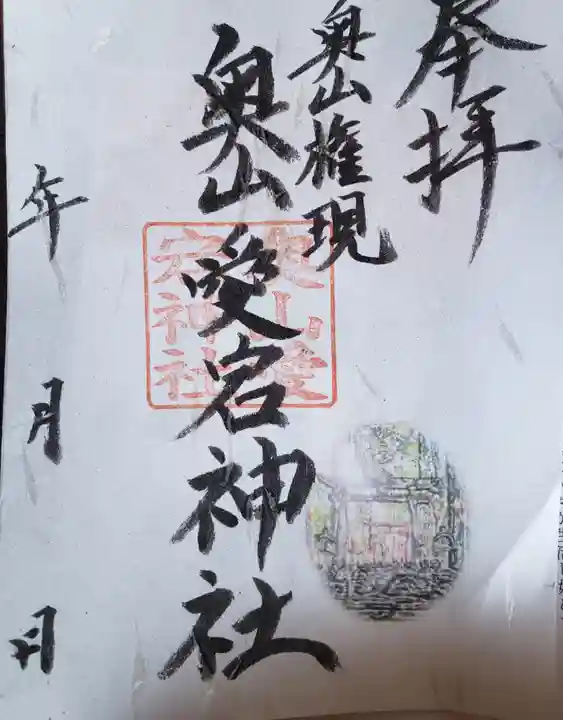 奉拝
奥山権現
奥山愛宕神社
奥山愛
宕神社
年 月 日